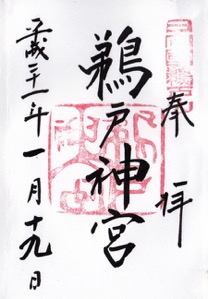 奉拝
鵜戸神宮
平成二十一年一月十九日